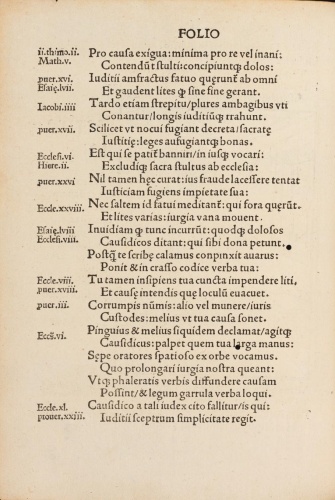 FOLIO
ii.thimo.ii. Pro causa exigua: minima pro re vel inani:
Math.v. Contendũt stulti: concipiuntꝗ dolos:
puer.xvi. Iuditii amfractus fatuo quęrunt̃ ab omni
Esaię.lvii. Et gaudent lites ꝗ sine fine gerant.
Iacobi.iiii Tardo etiam strepitu/plures ambagibus vti
Conantur/longis iuditiũꝗ trahunt.
puer.xvii. Scilicet vt nocui fugiant decreta/sacratę
Iustitię: leges aufugiantꝗ bonas.
Ecclesi.vi. Est qui se patit̃ banniri/in iusꝗ vocari:
Hiere.ii. Excludiꝗ sacra stultus ab ecclesia:
puer.xxvi Nil tamen hęc curat: ius fraude lacessere tentat
Iusticiam fugiens impietate sua:
Eccle.xxviii. Nec saltem id fatui meditant̃: qui fora quęrũt.
Et lites varias: iurgia vana mouent.
Esaię.lviii Inuidiam ꝗ tunc incurrũt: quodꝗ dolosos
Ecclesi.viii. Causidicos ditant: qui sibi dona petunt.
Postꝗ̃ te scribę calamus conpinxit auarus:
Ponit & in crasso codice verba tua:
Eccle.viii. Tu tamen insipiens tua cuncta impendere liti.
puer.xviii. Et causę intendis quę loculũ euacuet.
puer.iii. Corrumpis nũmis: alio vel munere/iuris
Custodes: melius vt tua causa sonet.
Pinguius & melius siquidem declamat/agitꝗ
Eccỹ.vi. Causidicus: palpet quem tua larga manus:
Sępe oratores spatioso ex orbe vocamus.
Quo prolongari iurgia nostra queant:
Vtꝗ phaleratis verbis diffundere causam
Possint/& legum garrula verba loqui.
Eccle.xl. Causidico a tali iudex cito fallitur/is qui:
prouer.xxiii. Iuditii sceptrum simplicitate regit.